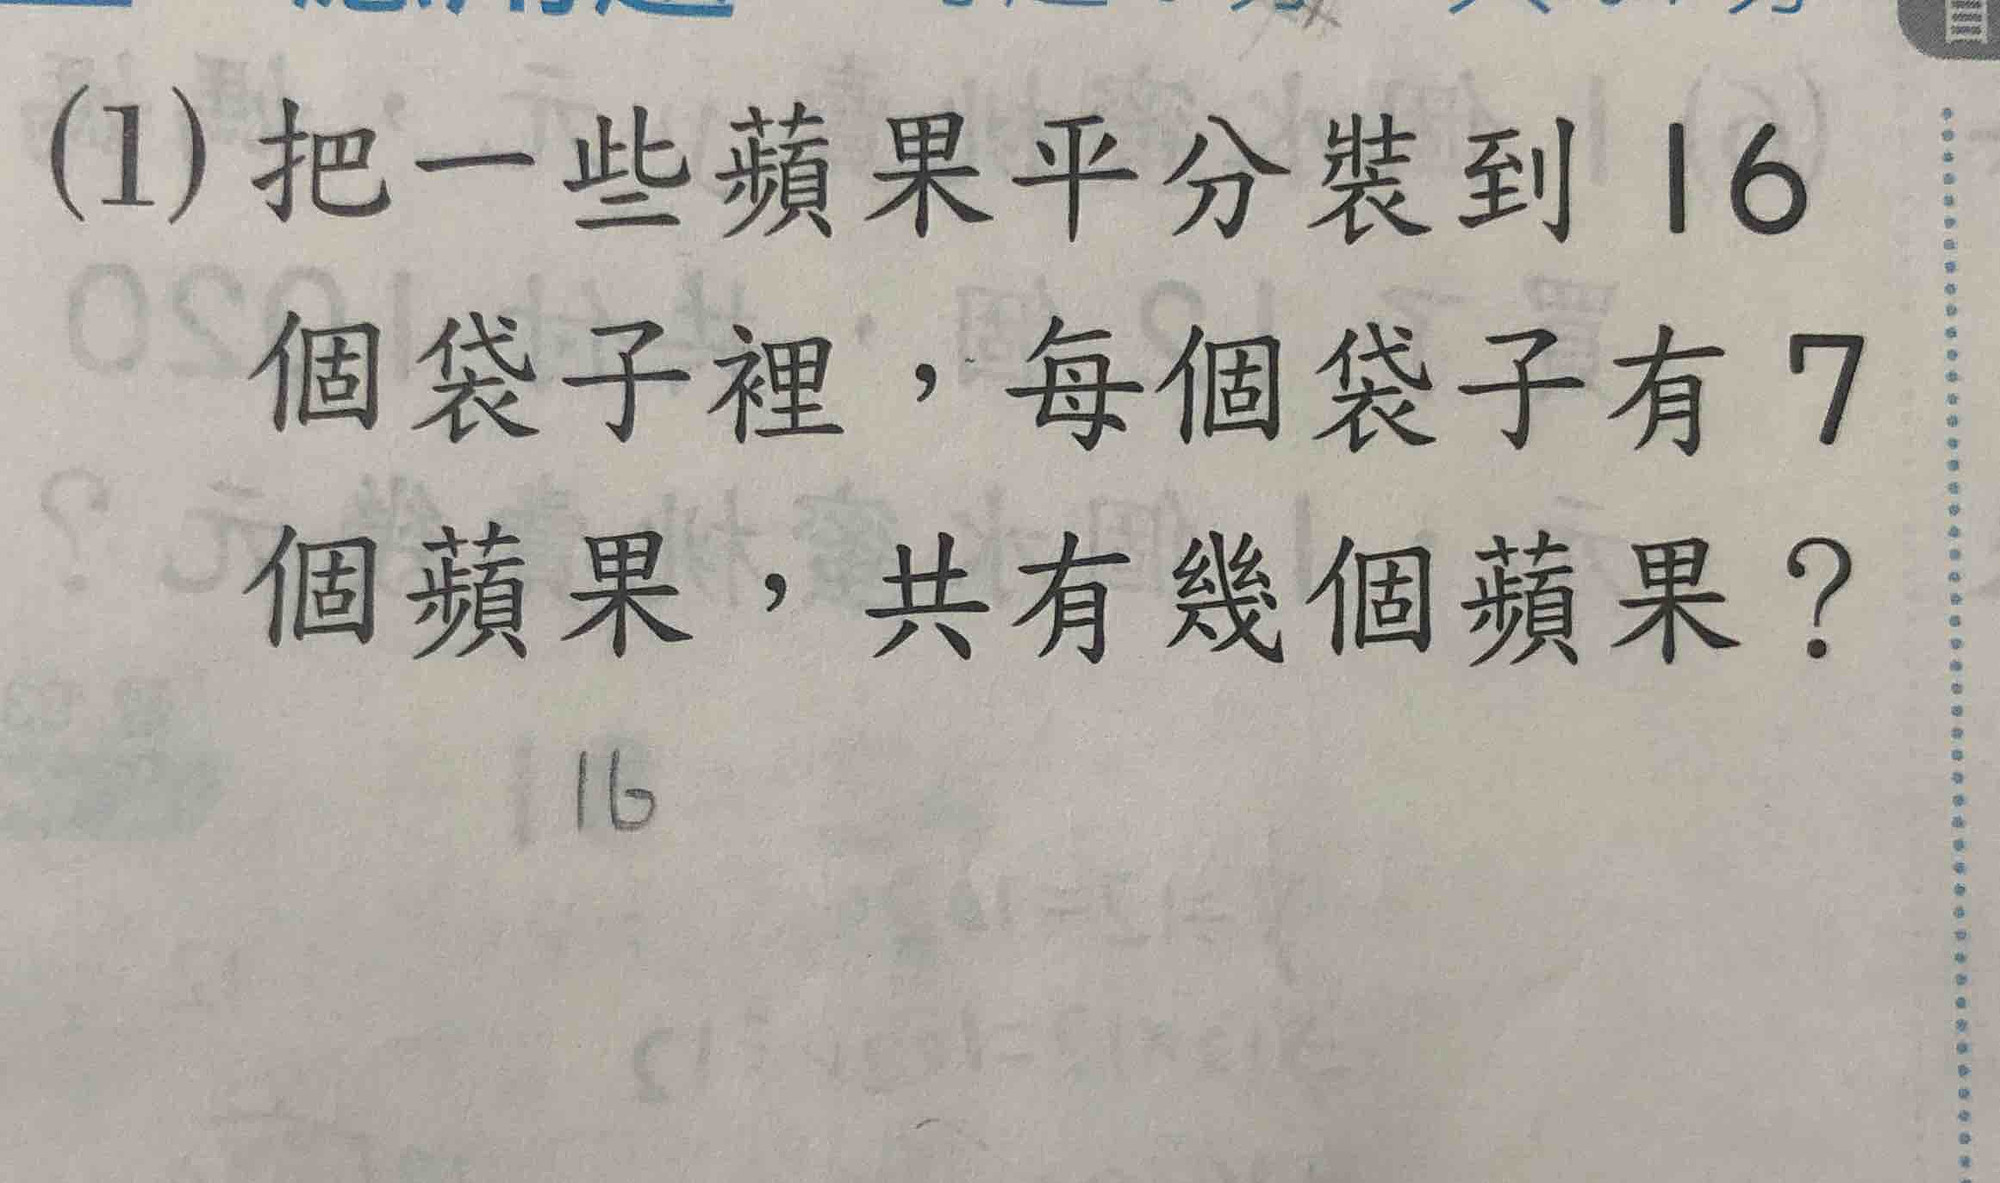 (1) 把一些蘋果平分裝到 16
個袋子裡，每個袋子有 7
個蘋果，共有幾個蘋果？
16